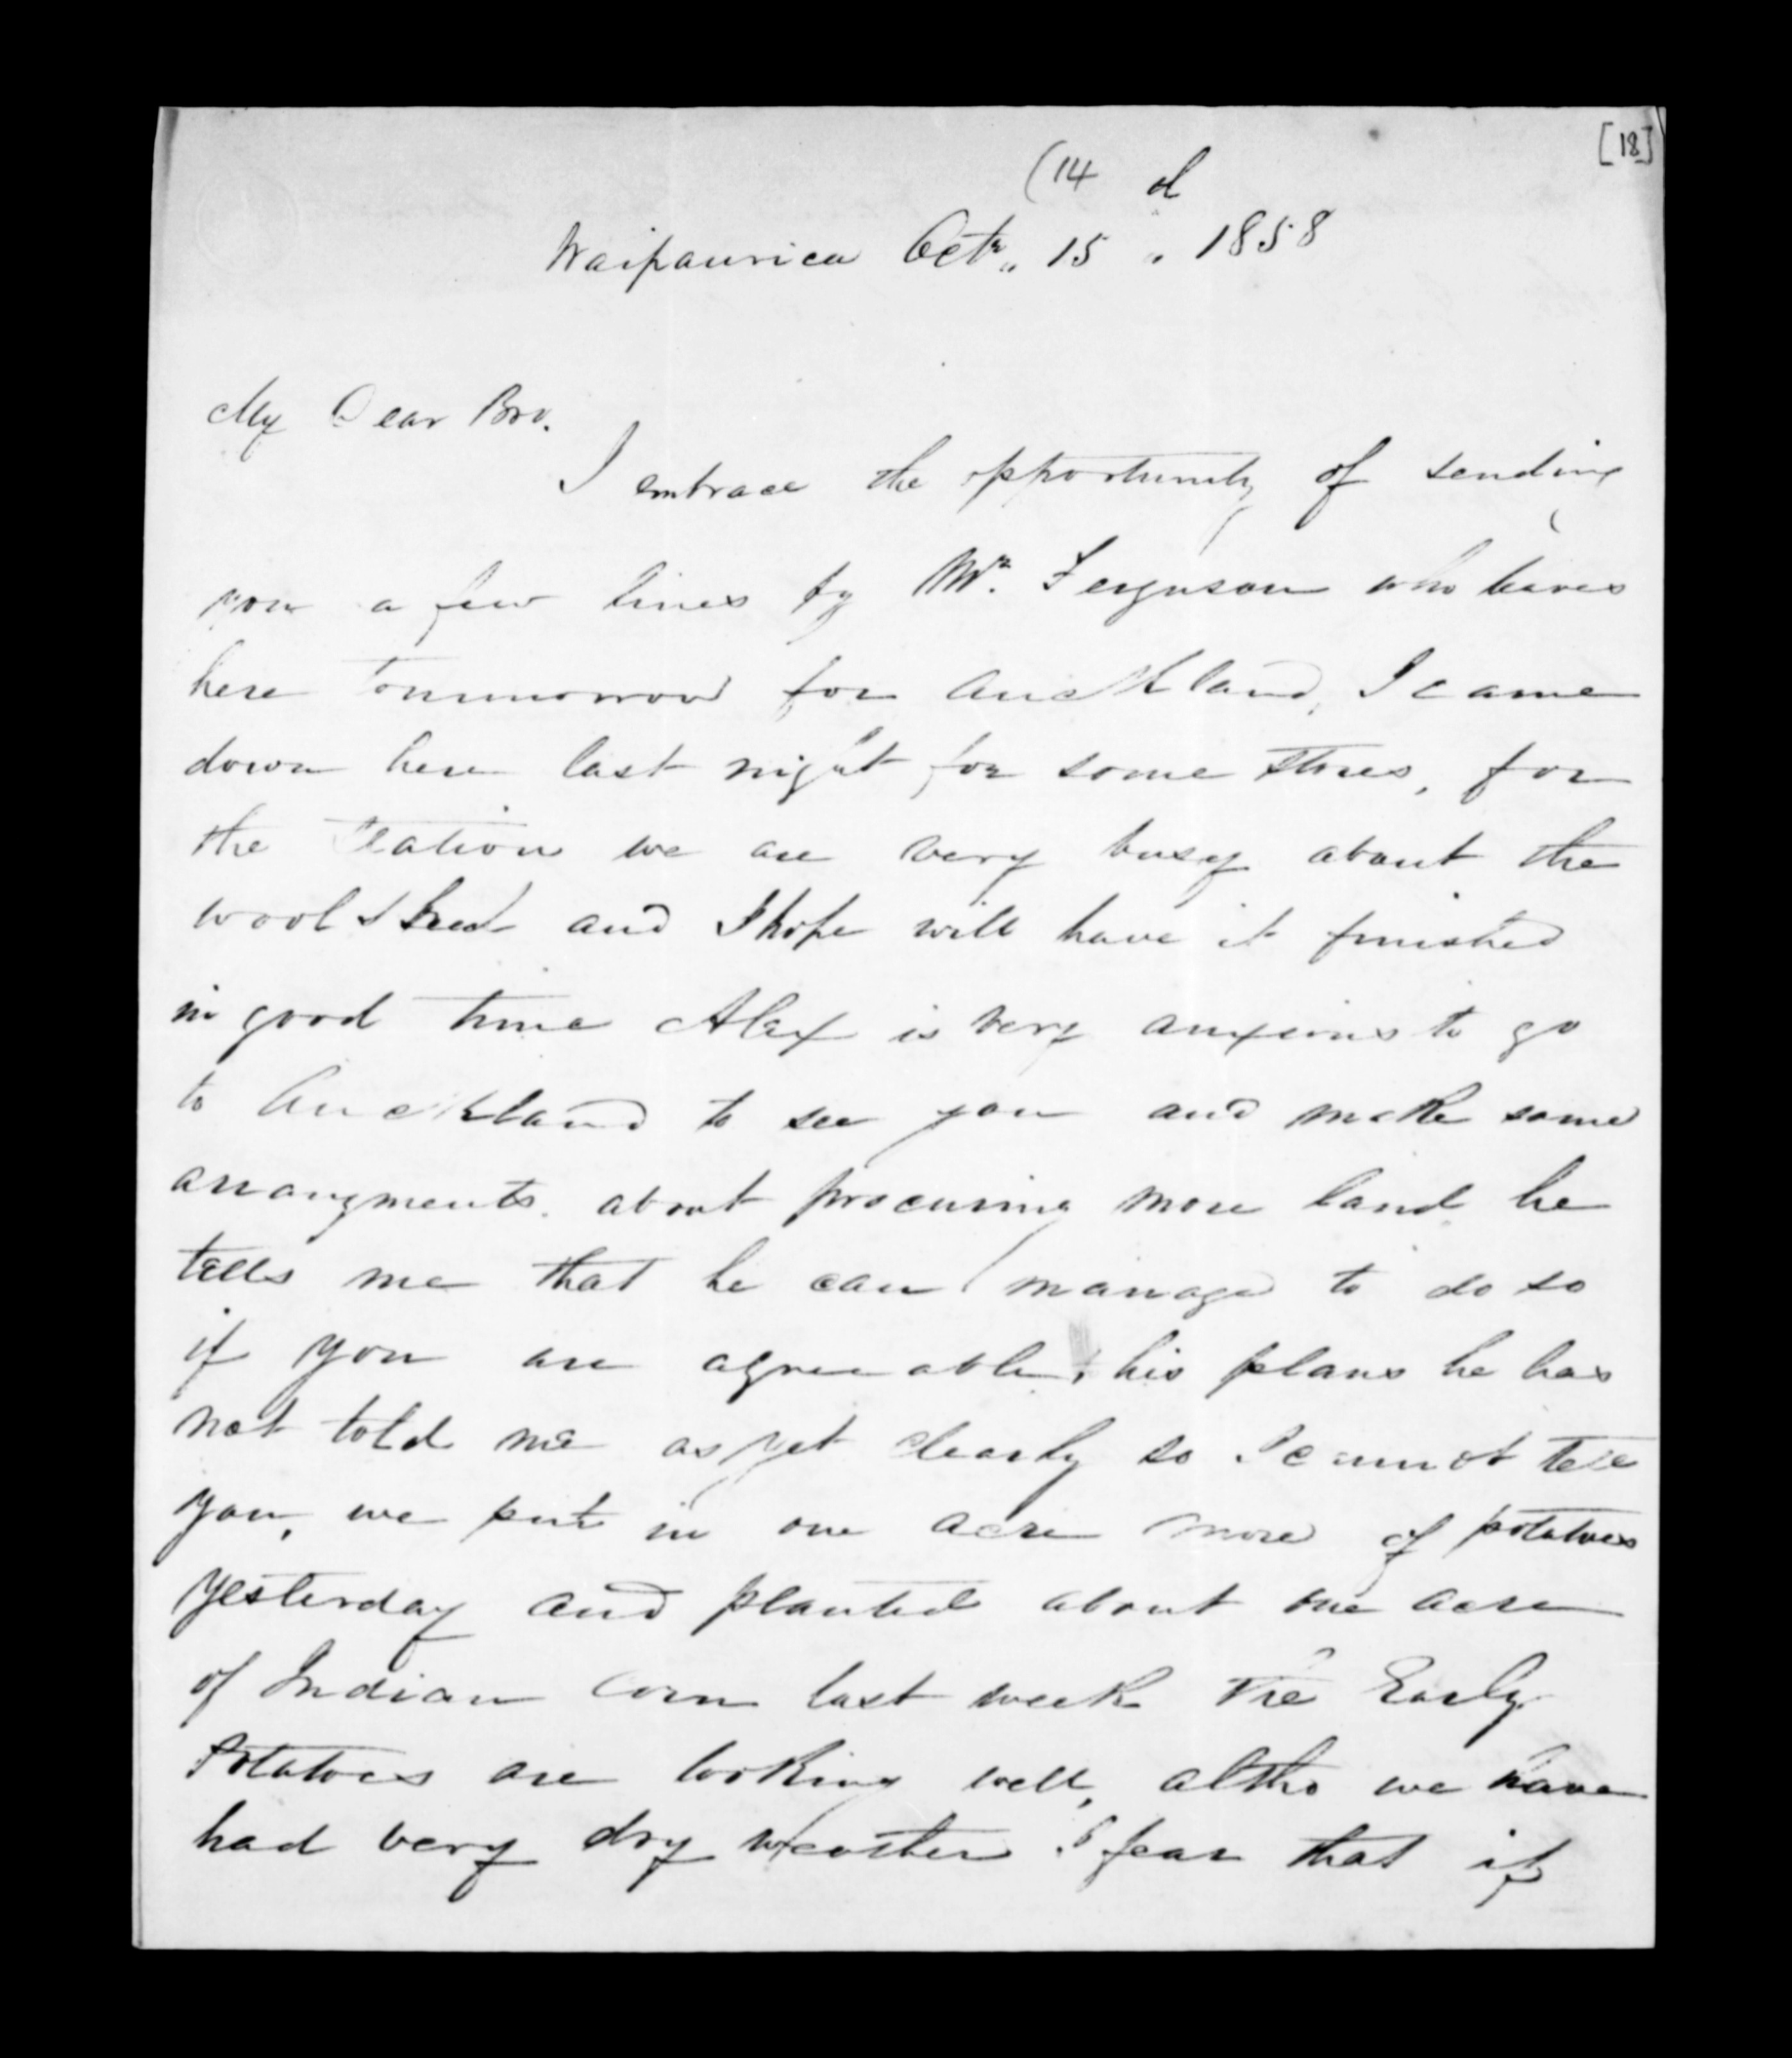 [18]
(14 d
Waipaurica Octr " 15 " 1858
My Dear Bro.
I embrace the opportunity of sending
you a few lines by Mr. Ferguson who leaves
here Tommorrow for Auckland, I came
down here last night for some stores, for
the Station we are very busy about the
wool shed and I hope will have it finished
in good time Alex is very anxious to go
to Auckland to see you and make some
arrangments. about procuring more land he
tells me that he can manage to do so
if you are agreeable, his plans he has
not told me as yet clearly so I cannot tell
you, we put in one acre more of potatoes
yesterday and planted about one acre
of Indian Corn last week The Early
Potatoes are looking well, altho we have
had very dry weather I fear that if